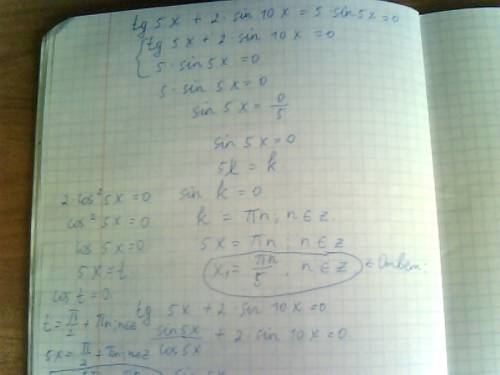 tg 5x + 2 · sin 10x = 5 · sin 5x = 0
{ tg 5x + 2 · sin 10x = 0
5 · sin 5x = 0
5 · sin 5x = 0
sin 5x = 0/5
sin 5x = 0
5x = k
sin k = 0
k = πn; n ∈ z
5x = πn; n ∈ z
x₁ = πn/5, n ∈ z ← Ответ:
tg 5x + 2 · sin 10x = 0
sin 5x/cos 5x + 2 · sin 10x = 0
sin 5x
2 · cos² 5x = 0
cos² 5x = 0
cos 5x = 0
5x = t
cos t = 0
t = π/2 + πn; n∈z
5x = π/2 + πn; n∈z